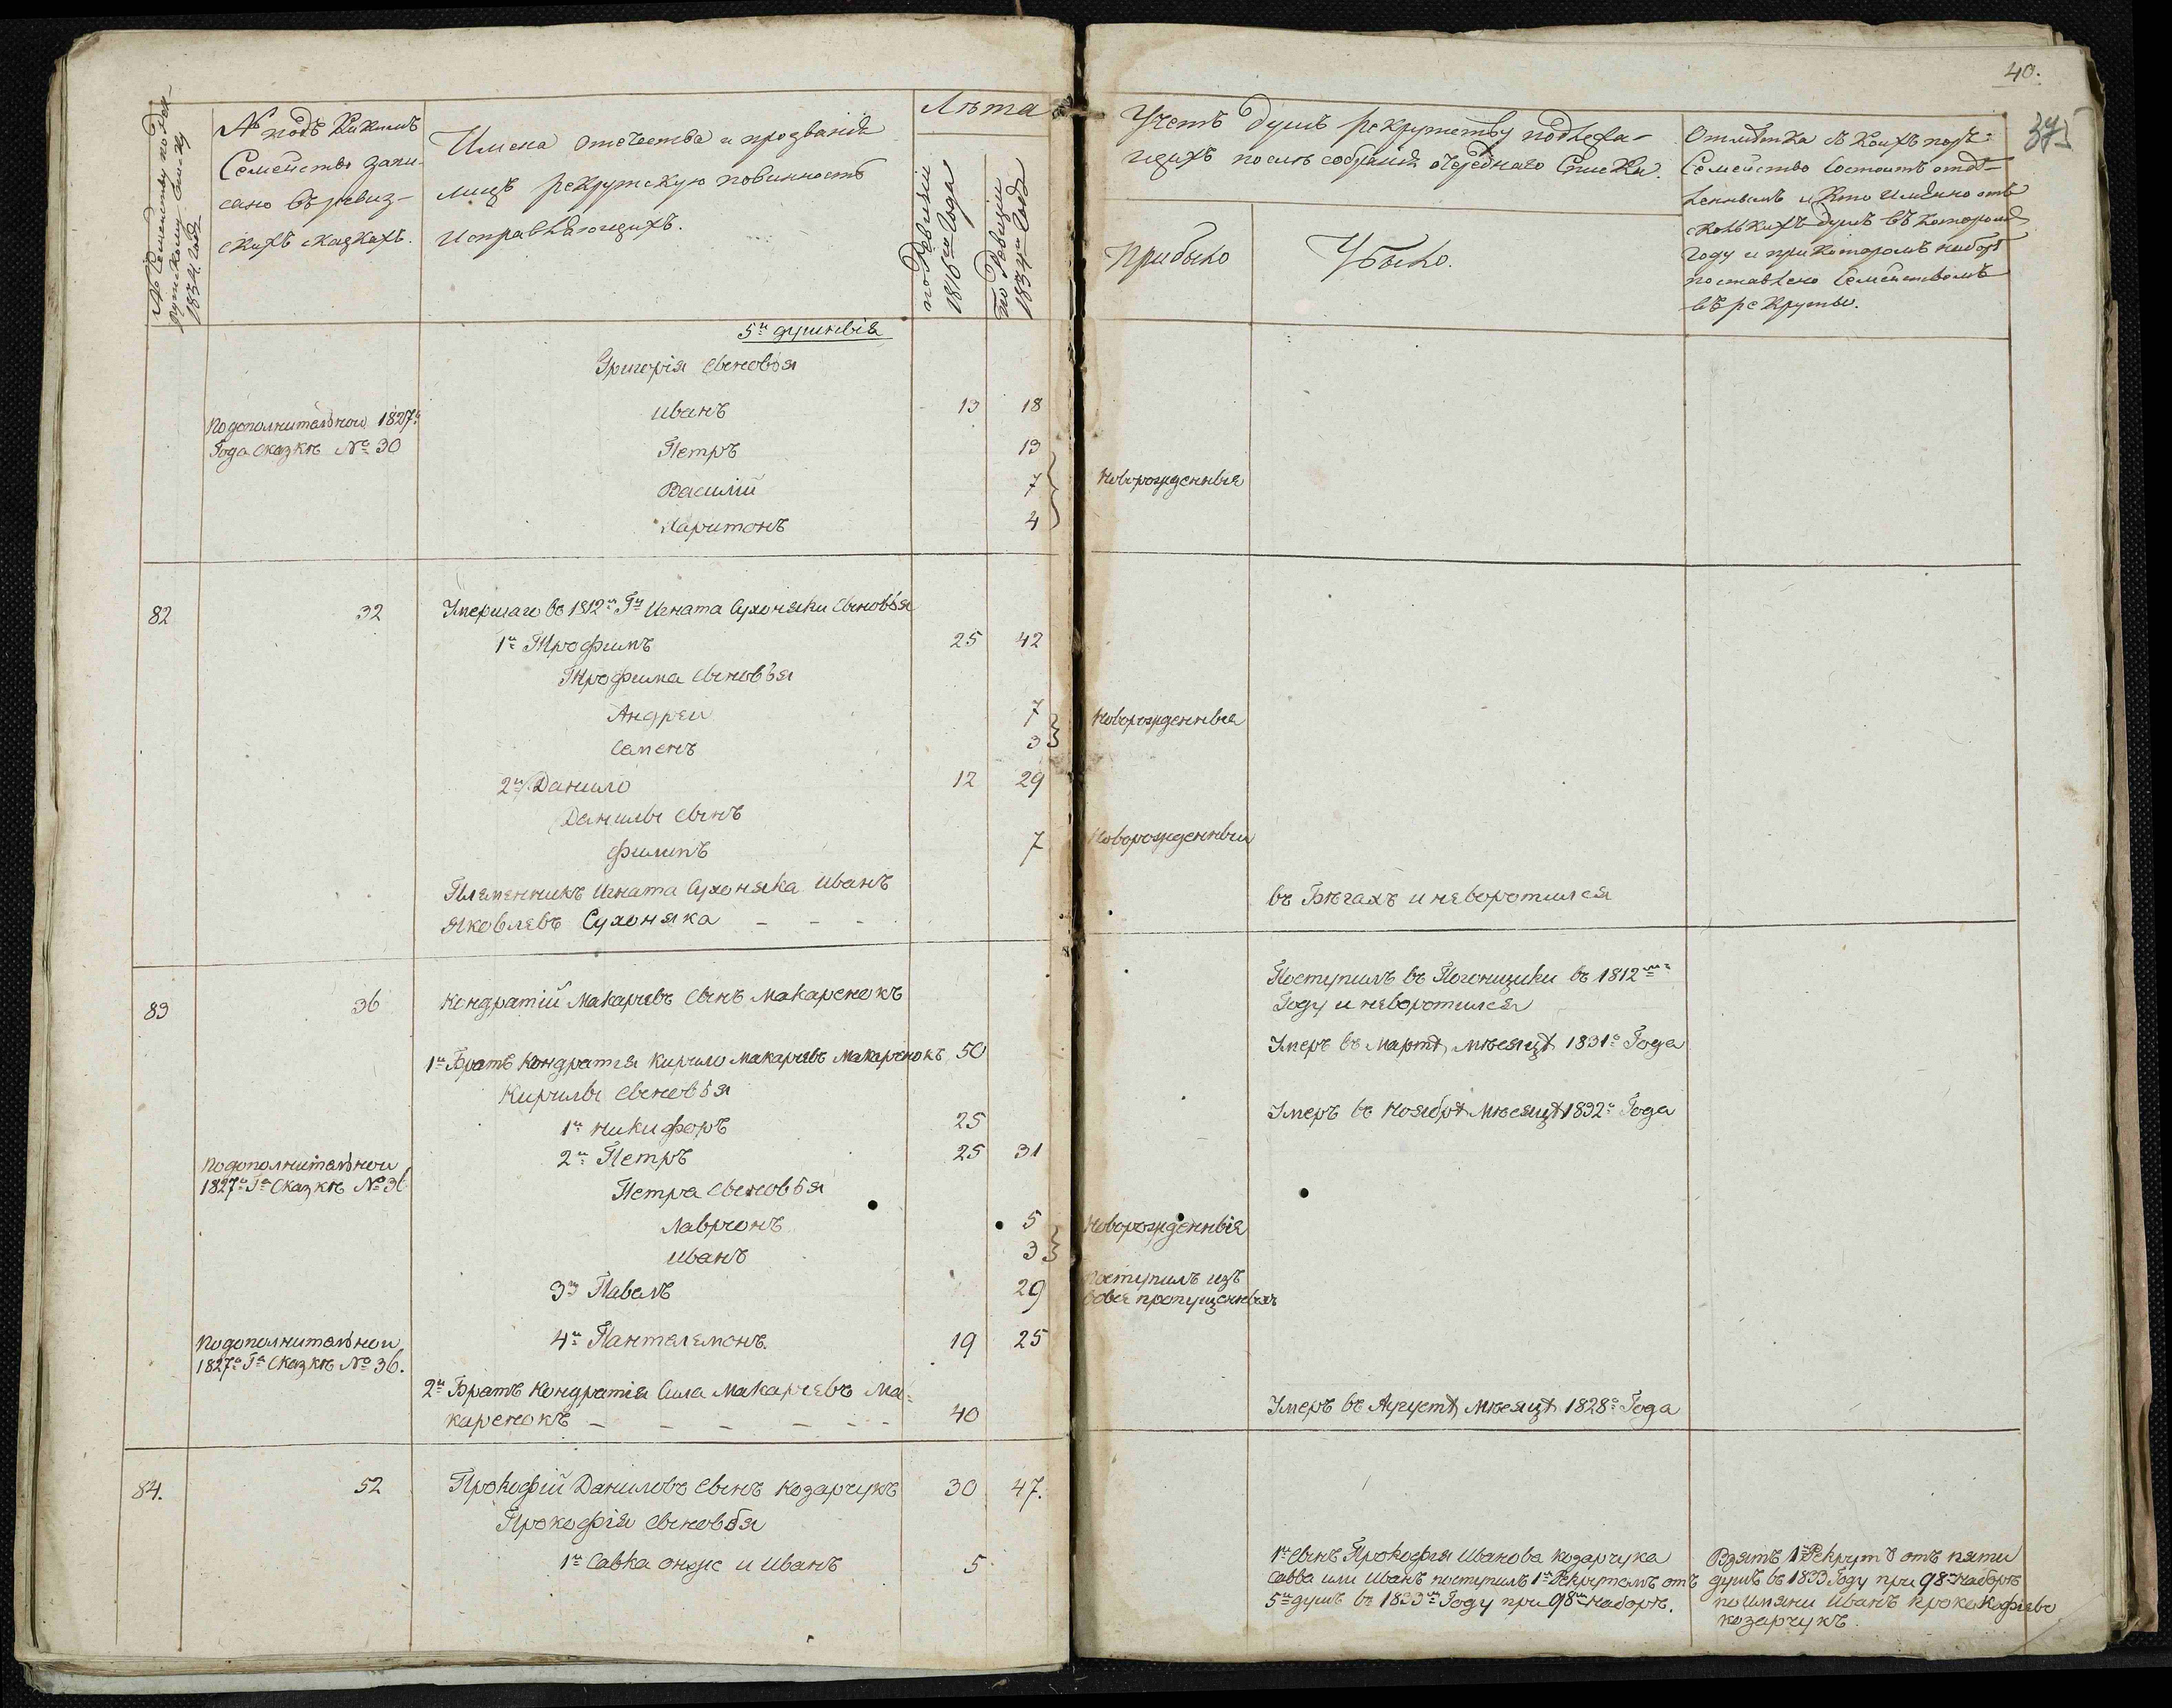 40.
375
№ Семейству по Рек-
рутскому Списку
1834. года
№ подъ Коимъ
Семейство запи-
сано въ ревиз-
скихъ сказкахъ.
Имена отечества и прозванія
лицъ рекрутскую повинность
исправляющихъ.
Лѣта
по Ревизіи
1816го Года
по Ревизіи
1834го Года
Учетъ душъ рекрутству подлежа-
щихъ послѣ собранія очереднаго Списка.
Прибыло
Убыло.
Отмѣтка
Семейство Состоитъ отдѣ-
леннымъ и Кто именно отъ
сколькихъ душъ въ которомъ
Году и при Которомъ наборѣ
поставлено Семействомъ
въ рекруты.
5и душныя
Григорія сыновья
По дополнительной 1827го
Года сказкѣ № 30
Иванъ 13 18
Петръ 13
Василій 7
Новорожденныя
Харитонъ 4
82 32 Умершаго въ 1812м Гу Игната Сухоняки сыновья
1й Трофимъ 25 42
Трофима сыновья
Андреи 7 Новорожденныя
Саменъ 3
2й Данило 12 29
Данилы сынъ
Филипъ 7 Новорожденныи
Племенникъ Игната Сухоняка Иванъ
Яковлевъ Сухоняка – – –
въ Бѣгахъ и неворотился
83 36 Кондратій Макаревъ сынъ Макаренокъ
Поступилъ въ Погонщики въ 1812м
Году и неворотился
1й Братъ Кондратія Кирило Макаревъ Макаренокъ 50
Умеръ въ Мартѣ мѣсяцѣ 1831го Года
Кирилы сыновья
1й Никифоръ 25
Умеръ въ Ноябрѣ Мѣсяцѣ 1832го Года
По дополнительнои
1827го Га Сказкѣ № 36
2й Петръ 25 31
Петра сыновья
Лаврионъ 5 Новорожденныя
Иванъ 3
3й Павелъ 29
Поступилъ изъ
пропущенныхъ
По дополнительнои
1827го Га Сказкѣ № 36.
4й Панталемонъ. 19 25
2й Братъ Кондратія Сила Макаревъ Ма-
каренокъ – – – – – – 40
Умеръ въ Августѣ Мѣсяцѣ 1828го Года
84. 52 Прокофій Даниловъ сынъ Козарчукъ 30 47.
Прокофія сыновья
1й Савка онже и Иванъ 5
1й сынъ Прокофія Иванова Козарчука
Савва или Иванъ поступилъ 1м Рекрутомъ отъ
5и душъ въ 1833м Году при 98м наборѣ.
Взятъ 1й Рекрутъ отъ пяти
душъ въ 1833 Году при 98м Наборѣ
по имяни Иванъ Прококофьевъ
Козарчукъ.